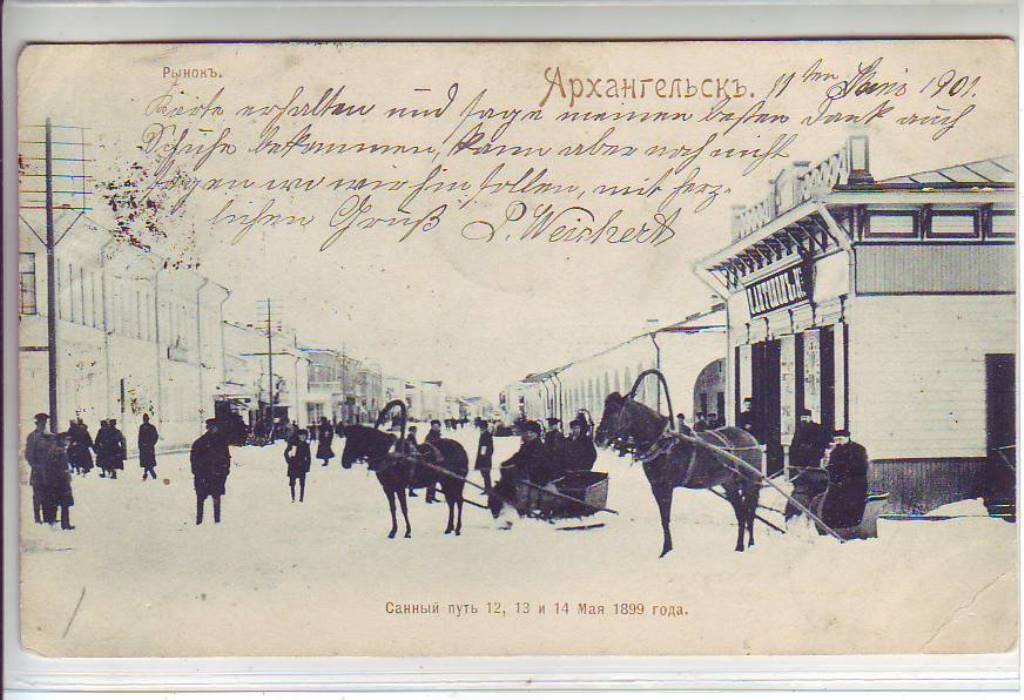 Рынокъ.
Архангельскъ.
11ten Juni 1901.
Karte erhalten und sage meinen besten Dank auch
Schuhe bekommen, kann aber noch nicht
sagen wo wir hin sollen, mit herz-
lichen Gruß P. Weichert
Санный путь 12, 13 и 14 Мая 1899 года.